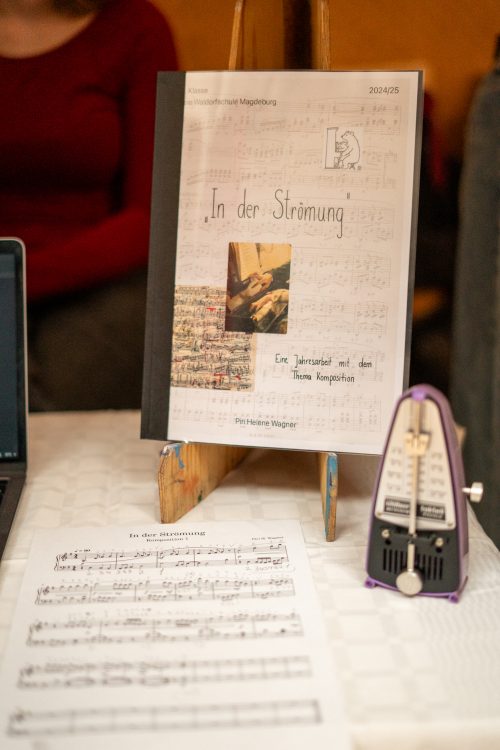 Klasse
2024/25
Waldorfschule Magdeburg
„In der Strömung"
Eine Jahresarbeit mit dem
Thema Komposition
Piri Helene Wagner
In der Strömung
Komposition I